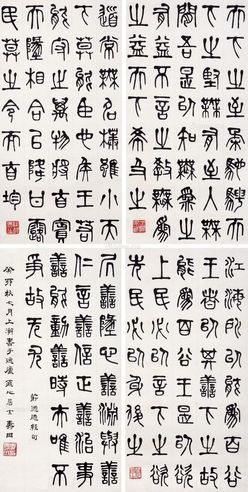 天下之至柔馳騁
天下之至堅無有入無
間吾是以知無為
之有益不言之教無為
之益天下希及之
道常無名樸雖小天
下莫能臣也王侯若
能守之萬物將自賓
天地相合以降甘露
民莫之令而自均
江海所以能為百谷
王者以其善下之故
能為百谷王是以欲
上民必以言下之欲
先民必以身後之
居善地心善淵與善
仁言善信政善治事
善能動善時夫唯不
爭故無尤
節道德經句
癸卯秋七月上澣書于